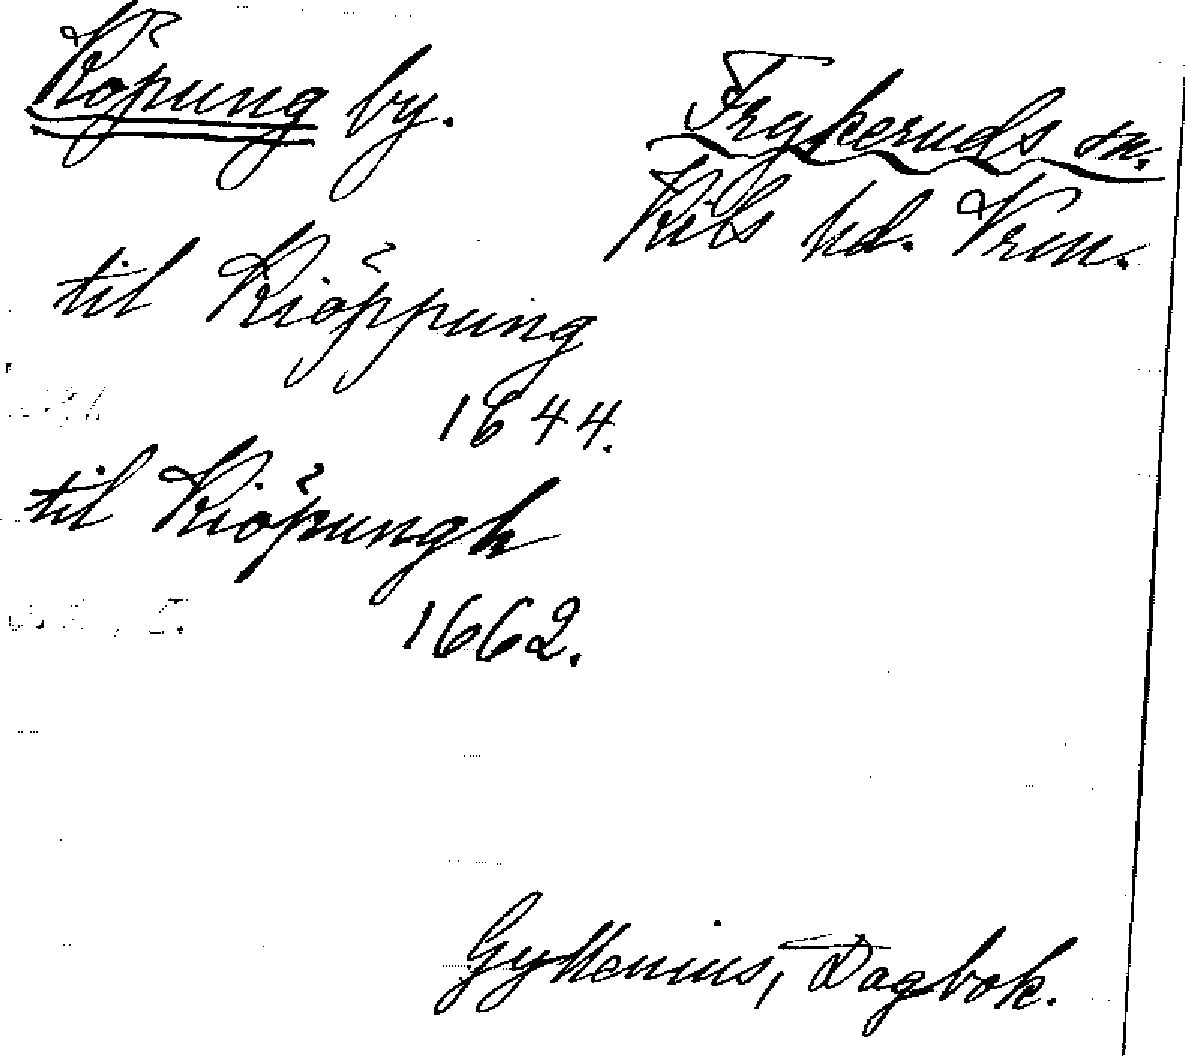 Köpung by.
Frykeruds sn.
Kils hd. Vrm.
til Kiöppung
1644.
til Kiöpungh
1662.
Gyllenius, Dagbok.